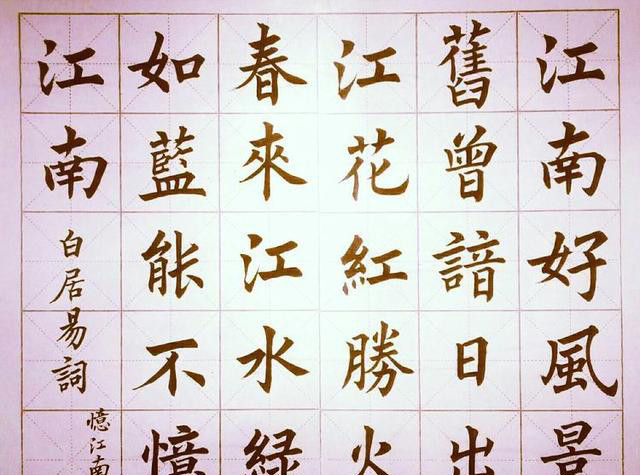 江南好風景
舊曾諳日出
江花紅勝火
春來江水緑
如藍能不憶
江南
白居易詞
憶江南